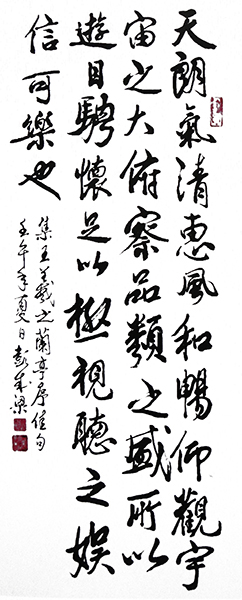 天朗氣清惠風和暢仰觀宇
宙之大俯察品類之盛所以
遊目騁懷足以極視聽之娱
信可樂也
集王羲之蘭亭序佳句
壬午年夏日彭末梁